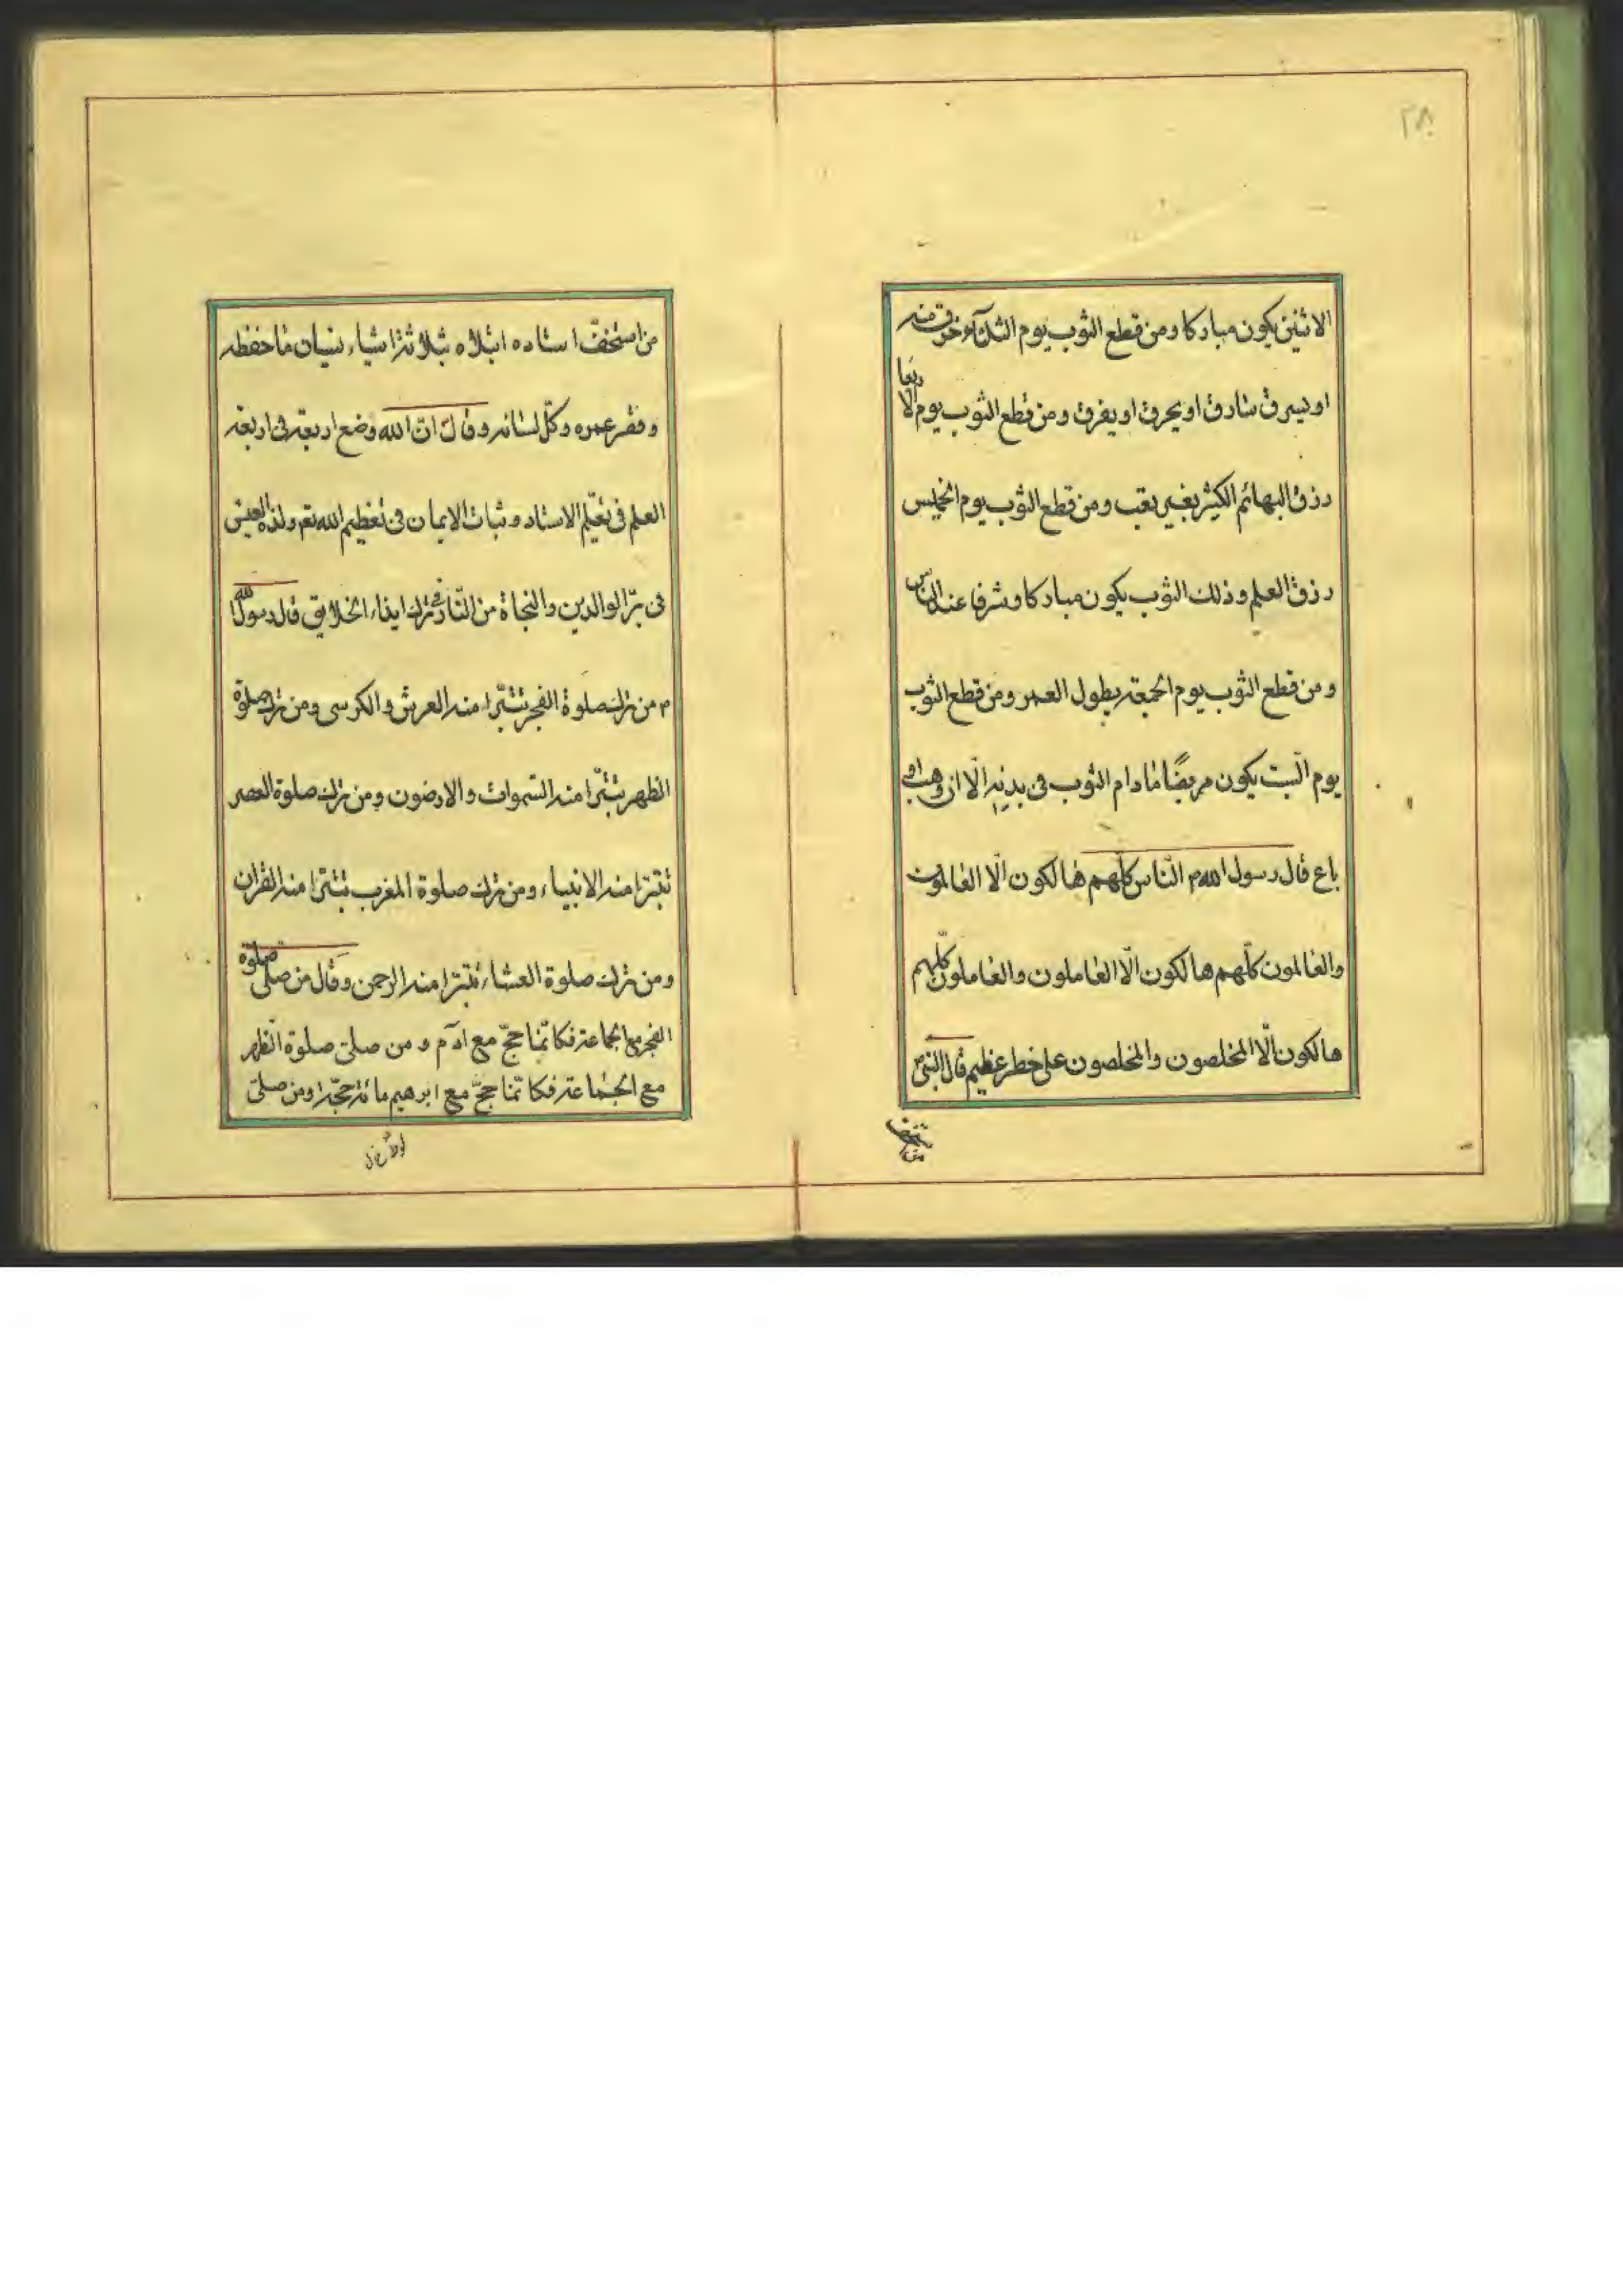 ٢٨
الاثنین یکون مبارکا ومن قطع الثوب یوم الثلثآء خرق منه
او یسرق سارق او یحرق او یغرق ومن قطع الثوب یوم الاربعا
رزق البهائم الکثیر بغیر تعب ومن قطع الثوب یوم الخمیس
رزق العلم وذلک الثوب یکون مبارکا وشرفا عند الناس
ومن قطع الثوب یوم الجمعة یطول العمر ومن قطع الثوب
یوم السّبت یکون مریضًا مادام الثوب فی بدنه الّا ان وهب او
باع قال رسول الله م النّاس کلّهم هالکون الّا العالمون
والعالمون کلّهم هالکون الّا العاملون والعاملون کلّهم
هالکون الّا المخلصون والمخلصون علی خطر عظیم قال النبیّ
من استخفّ استاده ابتلاه بثلاثة اشیاء نسیان ماحفظه
وفقر عمره وکلّ لسانه وقال انّ الله وضع اربعة فی اربعة
العلم فی تعلّیم الاستاد وثبات الایمان فی تعظیم الله تعم ولذة العیش
فی برّ الوالدین والنجاة من النّار فی ترک ایذاء الخلایق قال رسول الله
م من ترک صلوة الفجر تتبّرا منه العرش والکرسی ومن ترک صلوة
الظهر تتبّرا منه السّموات والارضون ومن ترک صلوة العصر
تتبرّا منه الانبیاء ومن ترک صلوة المغرب تتبرّا منه القران
ومن ترک صلوة العشاء تتبرّا منه الرحمن وقال من صلّی صلوة
الفجر مع الجماعة فکانّما حجّ مع آدم ومن صلّی صلوة الظهر
مع الجماعة فکانّما حجّ مع ابرهیم مائة حجّة ومن صلّی